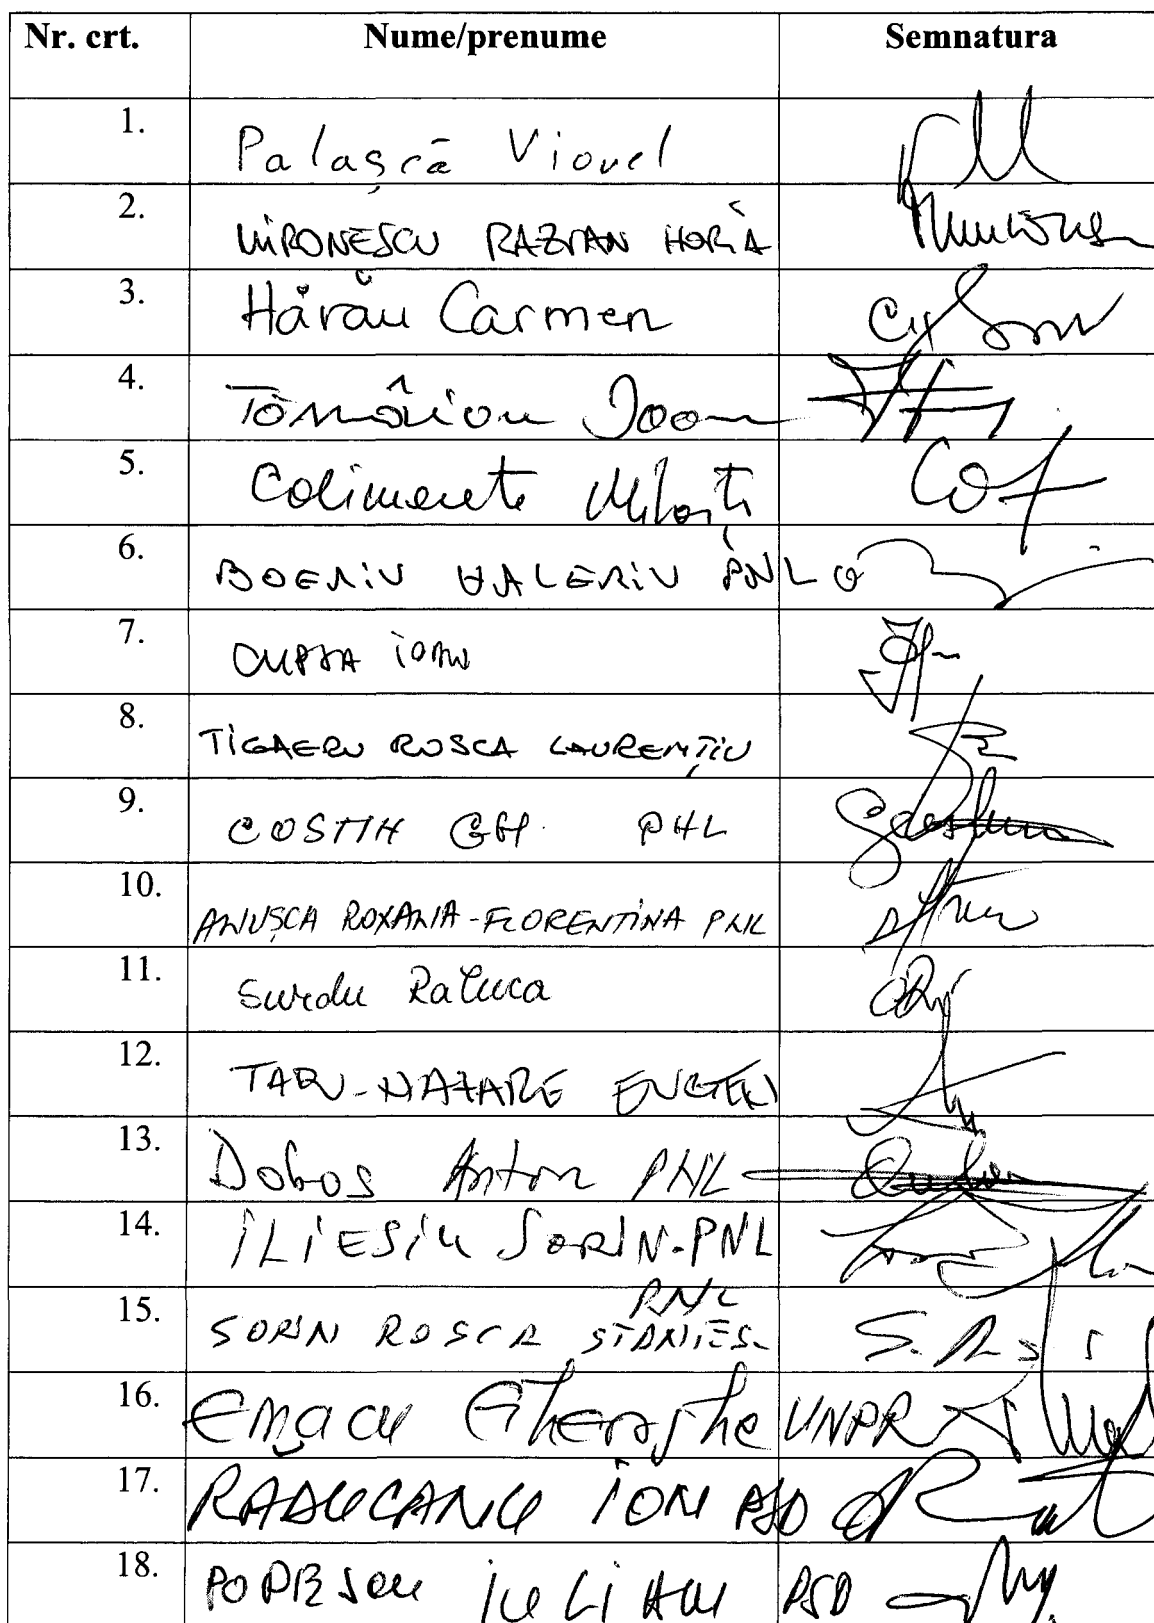 Nr. crt. Nume/prenume Semnatura
1. Palașcă Viorel
2. MIRONESCU RAZVAN HORIA
3. Hărău Carmen
4. Tămâian Ioan
5. Colimente
6. BOERIU VALERIU PNL
7. CUPSA IOAN
8. TIGAERU ROSCA LAURENȚIU
9. COSTIN GH. PNL
10. ANUȘCA ROXANA-FLORENTINA PNL
11. Surdu Raluca
12. TARU-NAZARE EUGEN
13. Dobos Anton PNL
14. ILIESIU SORIN-PNL
PNL
15. SORIN ROSCA STANIES.
16. Emacu Gheorghe UNPR
17. RADUCANU ION PSD
18. POPESCU IULIAN PSD